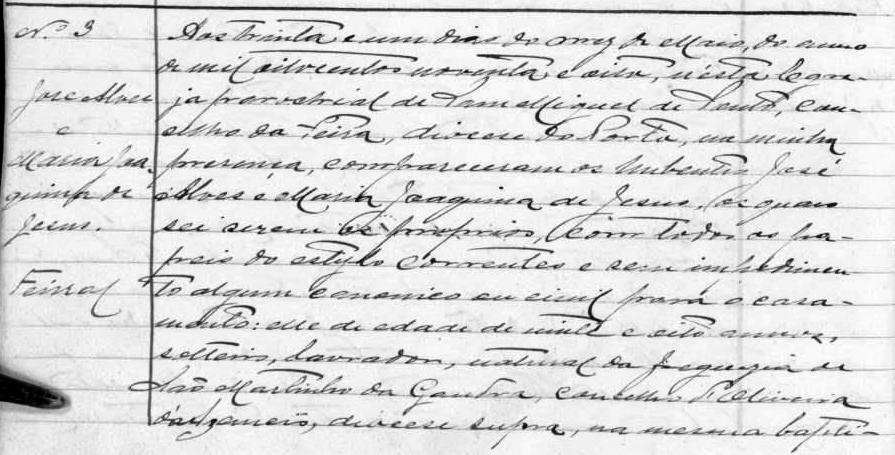 Nº 3
José Alves
e
Maria Joa-
quina de
Jesus.
Feiral
Aos trinta e um dias do mez de Maio, do anno
de mil oitocentos noventa e oito, n'esta Egre-
ja parochial de Sam Miguel de Souto, con-
celho da Feira, diocese do Porto, na minha
presença, compareceram os nubentes José
Alves e Maria Joaquina de Jesus, os quaes
sei serem os proprios, com todos os pa-
peis do estylo correntes e sem impedimen-
to algum canonico ou civil para o casa-
mento: elle de edade de vinte e oito annos,
solteiro, lavrador, natural da freguezia de
São Martinho da Gandra, concelho d'Oliveira
d'Azemeis, diocese supra, na mesma bapti-